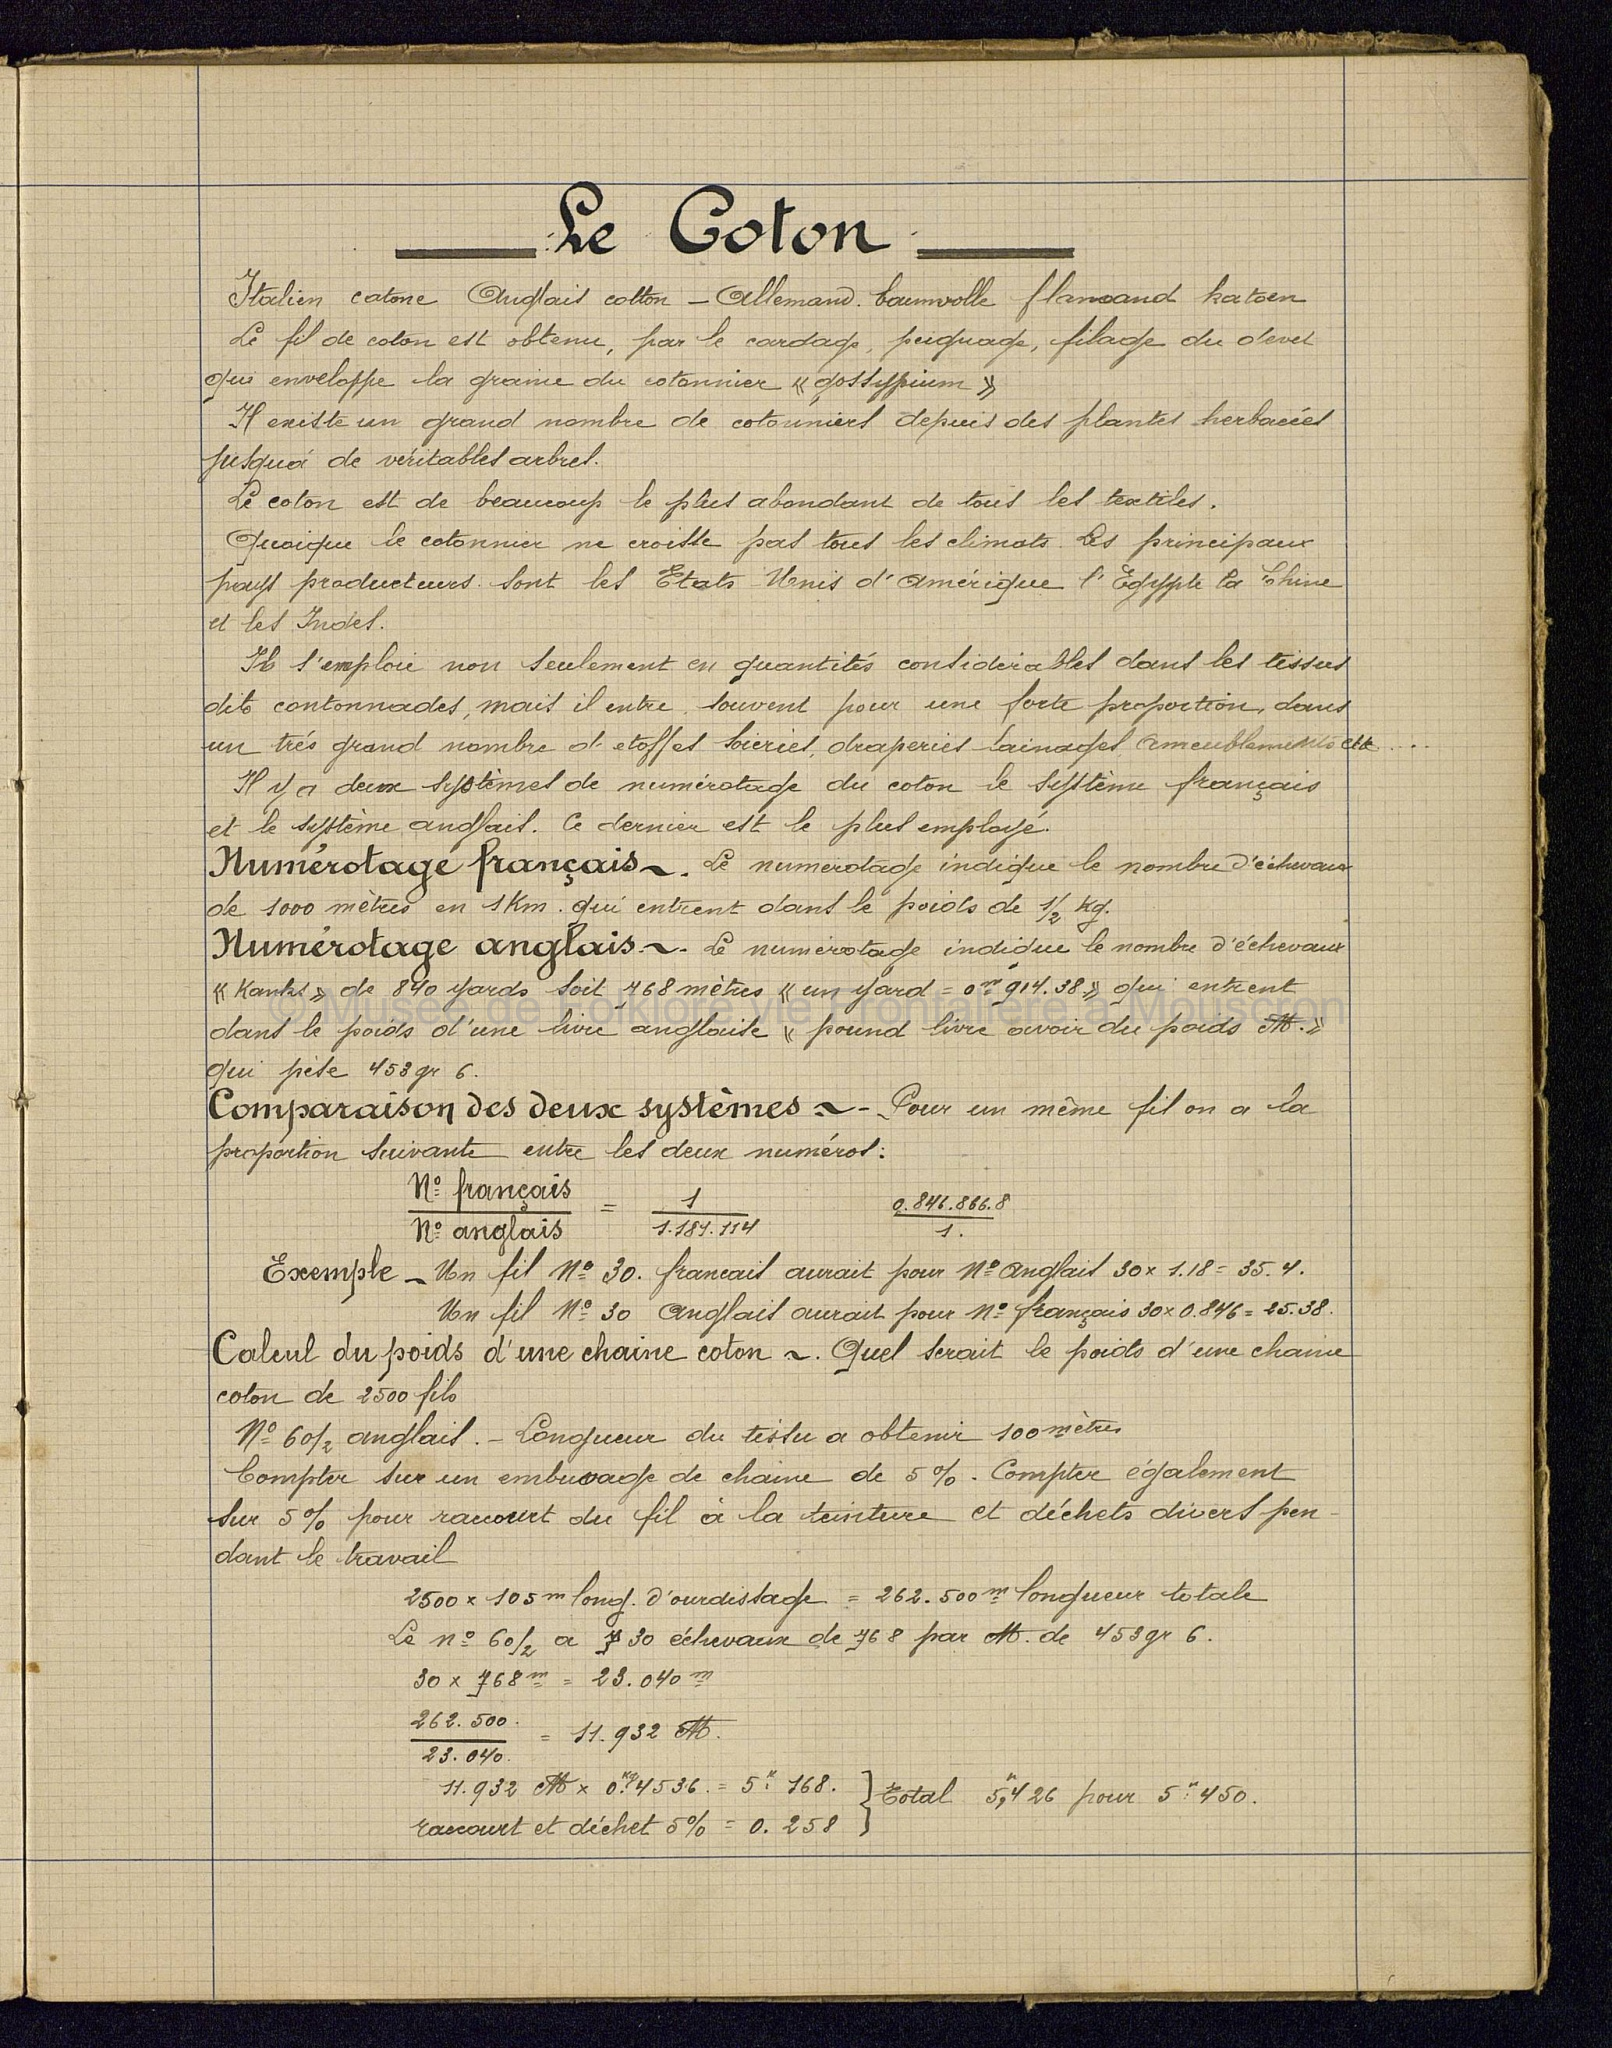 Le Coton
Italien catone Anglais cotton – Allemand. baumwolle flamand katoen
Le fil de coton est obtenu, par le cardage, peignage, filage du devet
qui enveloppe la graine du cotonnier « gossypium »
Il existe un grand nombre de cotonniers depuis des plantes herbacées
jusquá de véritables arbres.
Le coton est de beaucoup le plus abondant de tous les textiles.
Quoique le cotonnier ne croisse pas tous les climats. Les principaux
pays producteurs. sont les Etats Unis d'amérique l'Egypte la Chine
et les Indes.
Il s'emploie non seulement en quantités considérables dans les tissus
dits contonnades, mais il entre souvent pour une forte proportion, dans
un trés grand nombre d'etoffes soieries, draperies lainages ameublements etc ....
Il y a deux systèmes de numérotage du coton le système français
et le système anglais. Ce dernier est le plus employé.
Numérotage français ~. Le numerotage indique le nombre d'échevaux
de 1000 mètres en 1 Km. qui entrent dans le poids de 1/2 kg.
Numérotage anglais ~. Le numérotage indique le nombre d'échevaux
« Kanks » de 840 yards soit 768 mètres « un yard = 0m 914.38 » qui entrent
© Musée de Folklore vie Frontalière à Mouscron
dans le poids d'une livre anglaise « pound livre avoir du poids ℔. »
qui pèse 453 gr 6.
Comparaison des deux systèmes ~ - Pour un même fil on a la
proportion suivante entre les deux numéros:
No français / No anglais = 1 / 1.181.114 0.846.866.8 / 1.
Exemple – Un fil No 30. francais aurait pour No anglais 30 x 1.18 = 35.4.
Un fil No 30 anglais aurait pour No français 30 x 0.846 = 25.38.
Calcul du poids d'une chaine coton ~. Quel serait le poids d'une chaine
coton de 2500 fils
No 60/2 anglais. – Longueur du tissu a obtenir 100 mètres
Compter sur un embuvage de chaine de 5 %. Compter également
sur 5 % pour raccourt du fil à la teinture et déchets divers pen-
dant le travail
2500 x 105 m long. d'ourdissage = 262.500 m longueur totale
Le no 60/2 a 30 échevaux de 768 par ℔. de 453 gr 6.
30 x 768 m = 23.040 m
262.500 / 23.040 = 11.932 ℔.
11.932 ℔ x 0.kg 4536. = 5 k 168.
raccourt et déchet 5% = 0. 258 } Total 5,k 426 pour 5 k 450.